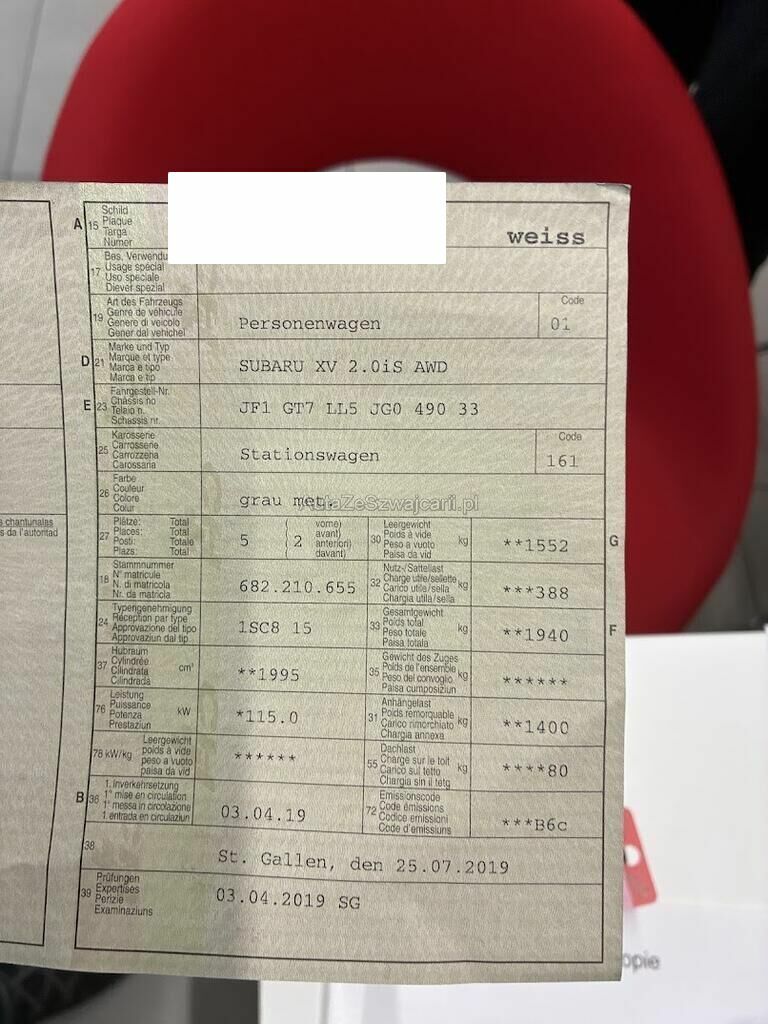 A 15 Schild
Plaque
Targa
Numer
weiss
17 Bes. Verwendu
Usage spécial
Uso speciale
Diever spezial
19 Art des Fahrzeugs
Genre de véhicule
Genere di veicolo
Gener dal vehichel
Personenwagen
Code
01
D 21 Marke und Typ
Marque et type
Marca e tipo
Marca e tip
SUBARU XV 2.0iS AWD
E 23 Fahrgestell-Nr.
Châssis no
Telaio n.
Schassis nr.
JF1 GT7 LL5 JG0 490 33
25 Karosserie
Carrosserie
Carrozzeria
Carossaria
Stationswagen
Code
161
26 Farbe
Couleur
Colore
Colur
grau met.
AutaZeSzwajcarii.pl
s chantunalas
s da l'autoritad
27 Plätze: Total
Places: Total
Posti: Totale
Plazs: Total
5 ( 2 vorne)
avant)
anteriori)
davant)
30 Leergewicht
Poids à vide
Peso a vuoto
Paisa da vid
kg
**1552
G
18 Stammnummer
N° matricule
N. di matricola
Nr. da matricla
682.210.655
32 Nutz-/Sattellast
Charge utile/sellette
Carico utile/sella
Chargia utila/sella
kg
***388
24 Typengenehmigung
Réception par type
Approvazione del tipo
Approvaziun dal tip
1SC8 15
33 Gesamtgewicht
Poids total
Peso totale
Paisa totala
kg
**1940
F
37 Hubraum
Cylindrée
Cilindrata
Cilindrada
cm³
**1995
35 Gewicht des Zuges
Poids de l'ensemble
Peso del convoglio
Paisa cumposiziun
kg
******
76 Leistung
Puissance
Potenza
Prestaziun
kW
*115.0
31 Anhängelast
Poids remorquable
Carico rimorchiato
Chargia annexa
kg
**1400
78 kW/kg Leergewicht
poids à vide
peso a vuoto
paisa da vid
******
55 Dachlast
Charge sur le toit
Carico sul tetto
Chargia sin il tetg
kg
****80
B 36 1. Inverkehrsetzung
1re mise en circulation
1a messa in circolazione
1. entrada en circulaziun
03.04.19
72 Emissionscode
Code émissions
Codice emissioni
Code d'emissiuns
***B6c
38
St. Gallen, den 25.07.2019
39 Prüfungen
Expertises
Perizie
Examinaziuns
03.04.2019 SG
opie